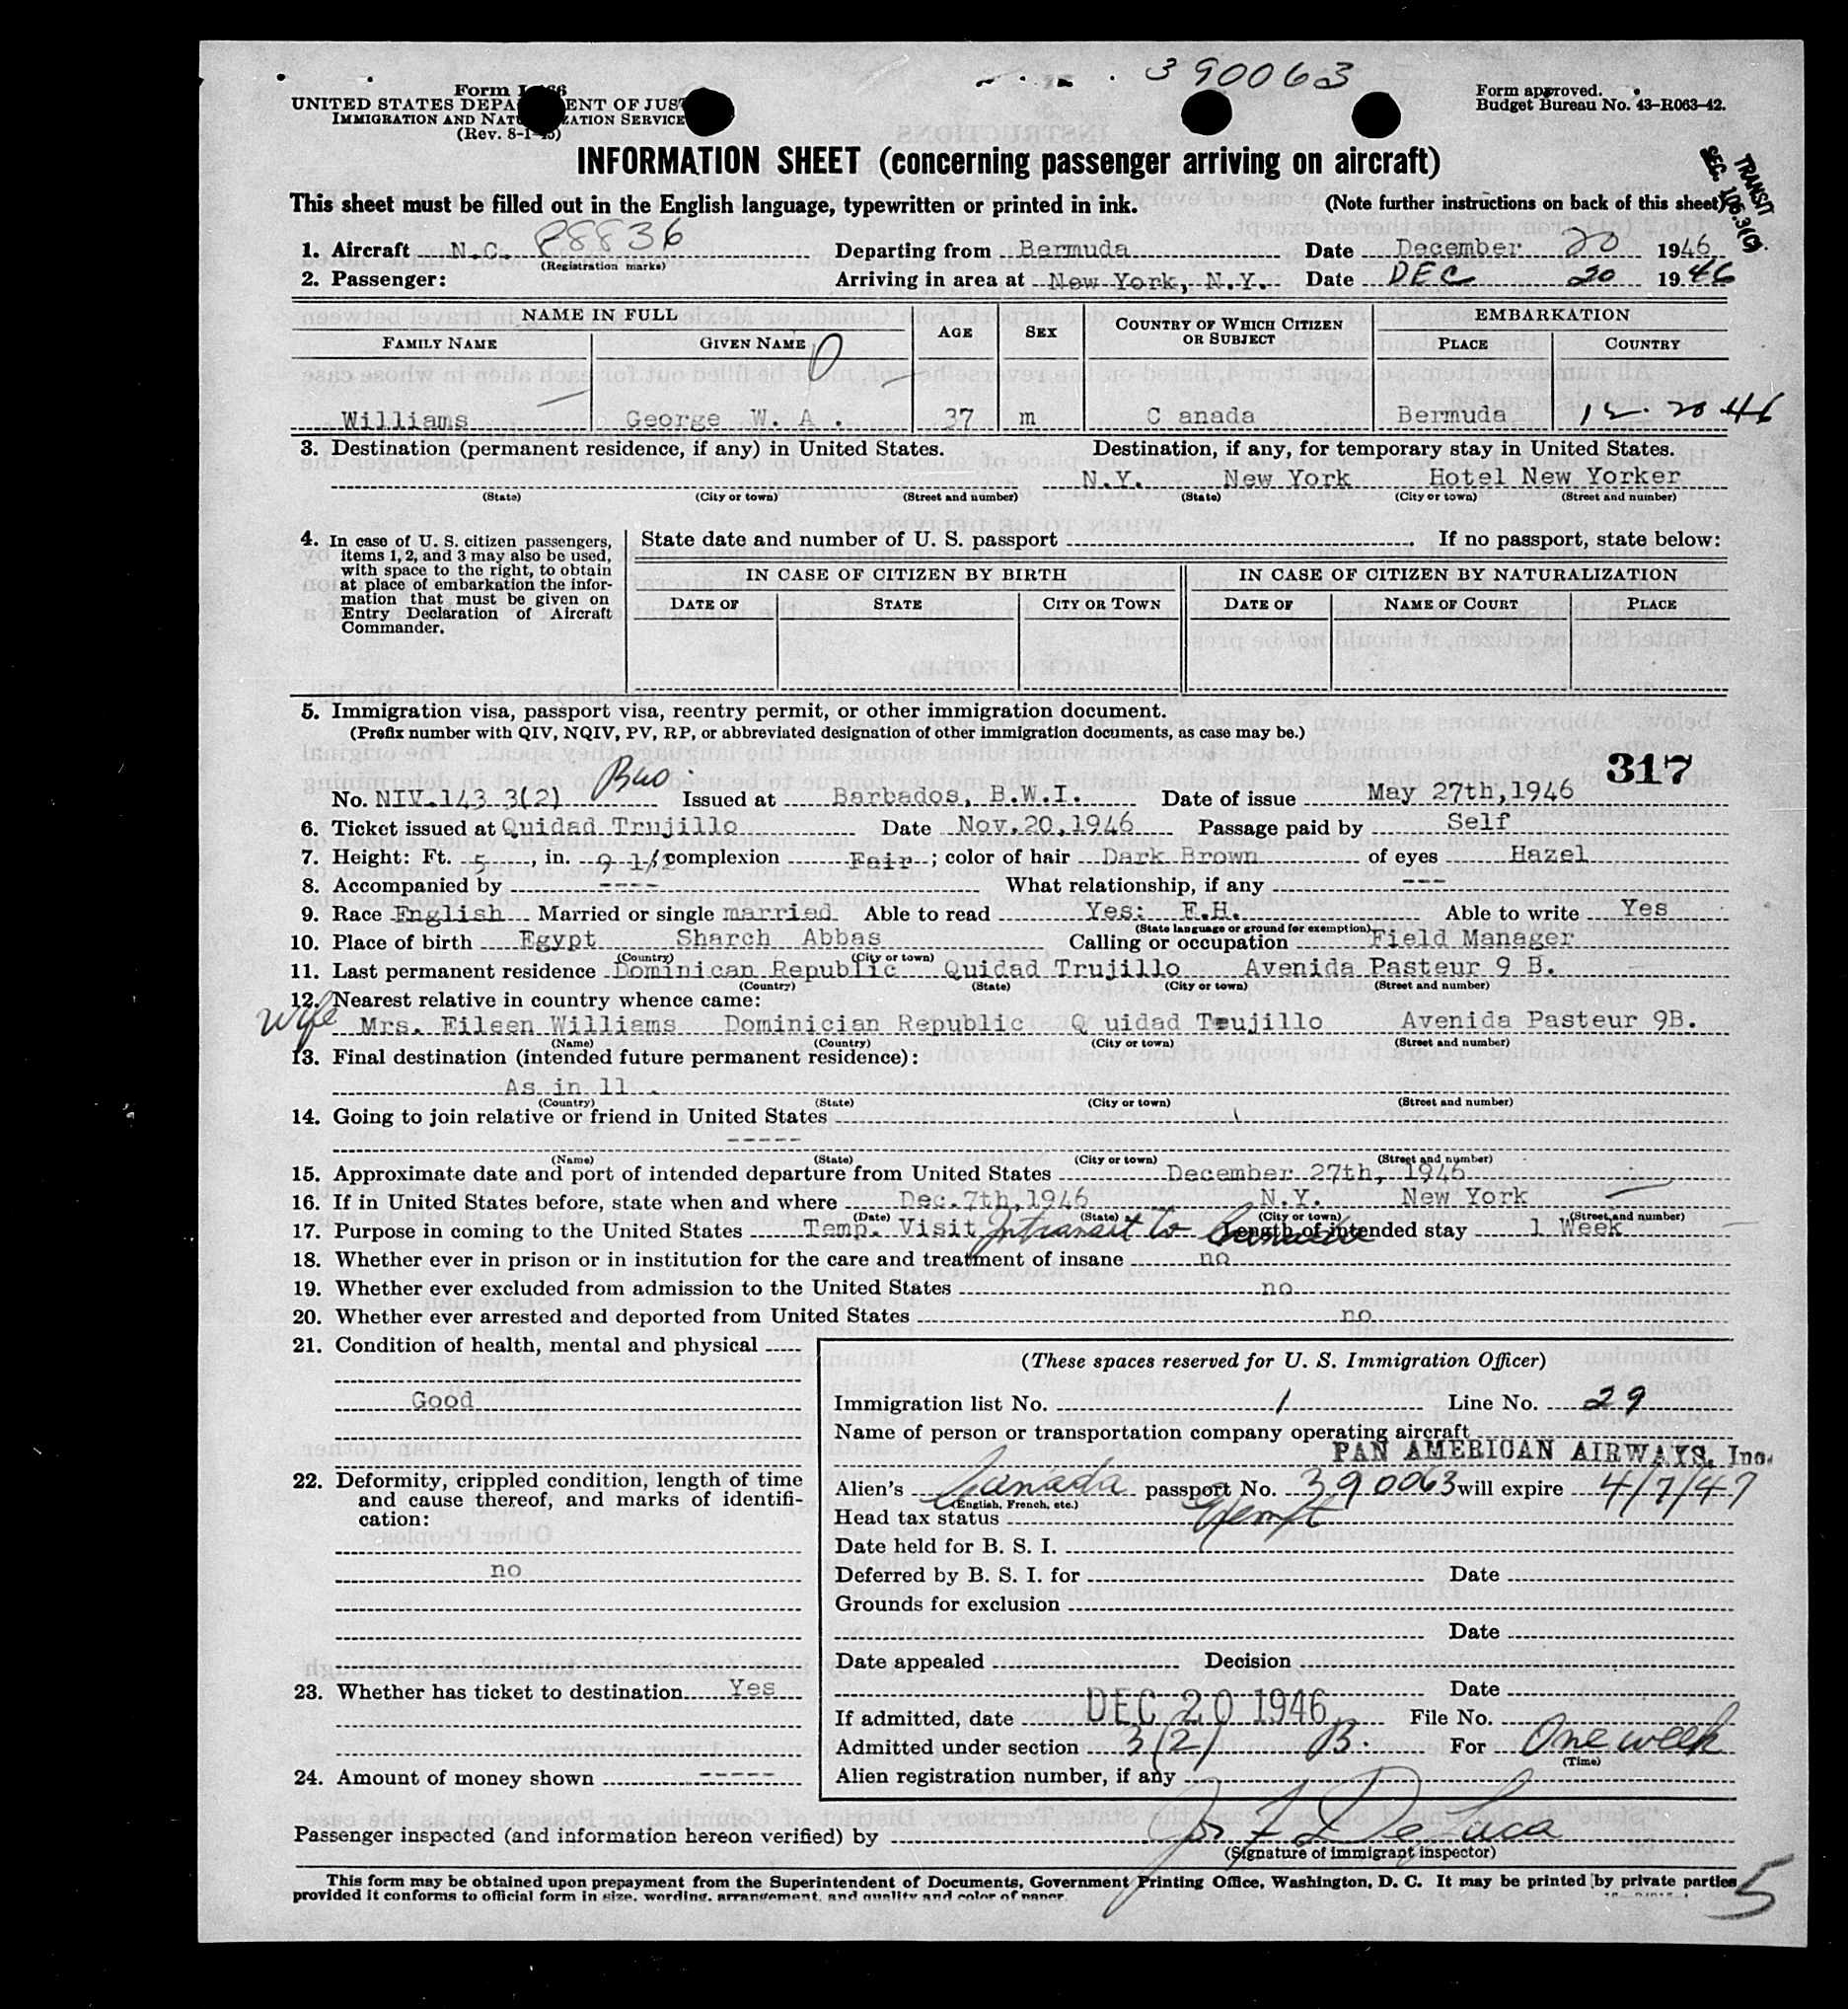 390063
Form I-466
UNITED STATES DEPARTMENT OF JUSTICE
IMMIGRATION AND NATURALIZATION SERVICE
(Rev. 8-1-45)
Form approved.
Budget Bureau No. 43-R063-42.
INFORMATION SHEET (concerning passenger arriving on aircraft)
TRANSIT
SEC. 105.3(C)
This sheet must be filled out in the English language, typewritten or printed in ink. (Note further instructions on back of this sheet)
1. Aircraft N.C. 88836 Departing from Bermuda Date December 20 1946
(Registration marks)
2. Passenger: Arriving in area at New York, N.Y. Date DEC 20 1946
NAME IN FULL AGE SEX COUNTRY OF WHICH CITIZEN OR SUBJECT EMBARKATION
FAMILY NAME GIVEN NAME PLACE COUNTRY
Williams George W. A . 37 m C anada Bermuda 12. 20 46
3. Destination (permanent residence, if any) in United States. Destination, if any, for temporary stay in United States.
N.Y. New York Hotel New Yorker
(State) (City or town) (Street and number) (State) (City or town) (Street and number)
4. In case of U. S. citizen passengers, items 1, 2, and 3 may also be used, with space to the right, to obtain at place of embarkation the information that must be given on Entry Declaration of Aircraft Commander.
State date and number of U. S. passport . If no passport, state below:
IN CASE OF CITIZEN BY BIRTH IN CASE OF CITIZEN BY NATURALIZATION
DATE OF STATE CITY OR TOWN DATE OF NAME OF COURT PLACE
5. Immigration visa, passport visa, reentry permit, or other immigration document.
(Prefix number with QIV, NQIV, PV, RP, or abbreviated designation of other immigration documents, as case may be.)
317
No. NIV.143 3(2) Issued at Barbados, B.W.I. Date of issue May 27th,1946
6. Ticket issued at Quidad Trujillo Date Nov.20,1946 Passage paid by Self
7. Height: Ft. 5 , in. 9 1/2 complexion Fair ; color of hair Dark Brown of eyes Hazel
8. Accompanied by ---- What relationship, if any ---
9. Race English Married or single married Able to read Yes: E.H. Able to write Yes
(State language or ground for exemption)
10. Place of birth Egypt Sharch Abbas Calling or occupation Field Manager
(Country) (City or town)
11. Last permanent residence Dominican Republic Quidad Trujillo Avenida Pasteur 9 B.
(Country) (State) (City or town) (Street and number)
12. Nearest relative in country whence came:
Wife Mrs. Eileen Williams Dominician Republic Q uidad Teujillo Avenida Pasteur 9B.
(Name) (Country) (City or town) (Street and number)
13. Final destination (intended future permanent residence):
As in 11 .
(Country) (State) (City or town) (Street and number)
14. Going to join relative or friend in United States
-----
(Name) (State) (City or town) (Street and number)
15. Approximate date and port of intended departure from United States December 27th, 1946
16. If in United States before, state when and where Dec.7th,1946 N.Y. New York
(Date) (State) (City or town) (Street and number)
17. Purpose in coming to the United States Temp. Visit Intransit to Canada Length of intended stay 1 Week
18. Whether ever in prison or in institution for the care and treatment of insane no
19. Whether ever excluded from admission to the United States no
20. Whether ever arrested and deported from United States no
21. Condition of health, mental and physical
Good
22. Deformity, crippled condition, length of time and cause thereof, and marks of identification:
no
23. Whether has ticket to destination Yes
24. Amount of money shown -----
(These spaces reserved for U. S. Immigration Officer)
Immigration list No. 1 Line No. 29
Name of person or transportation company operating aircraft
PAN AMERICAN AIRWAYS, Inc.
Alien's Canada passport No. 390063 will expire 4/7/47
(English, French, etc.)
Head tax status Exempt
Date held for B. S. I.
Deferred by B. S. I. for Date
Grounds for exclusion
Date
Date appealed Decision
Date
If admitted, date DEC 20 1946 File No.
Admitted under section 3(2) B. For One week
(Time)
Alien registration number, if any
Passenger inspected (and information hereon verified) by Jos F De Luca
(Signature of immigrant inspector)
This form may be obtained upon prepayment from the Superintendent of Documents, Government Printing Office, Washington, D. C. It may be printed by private parties
provided it conforms to official form in size, wording, arrangement, and quality and color of paper.
5